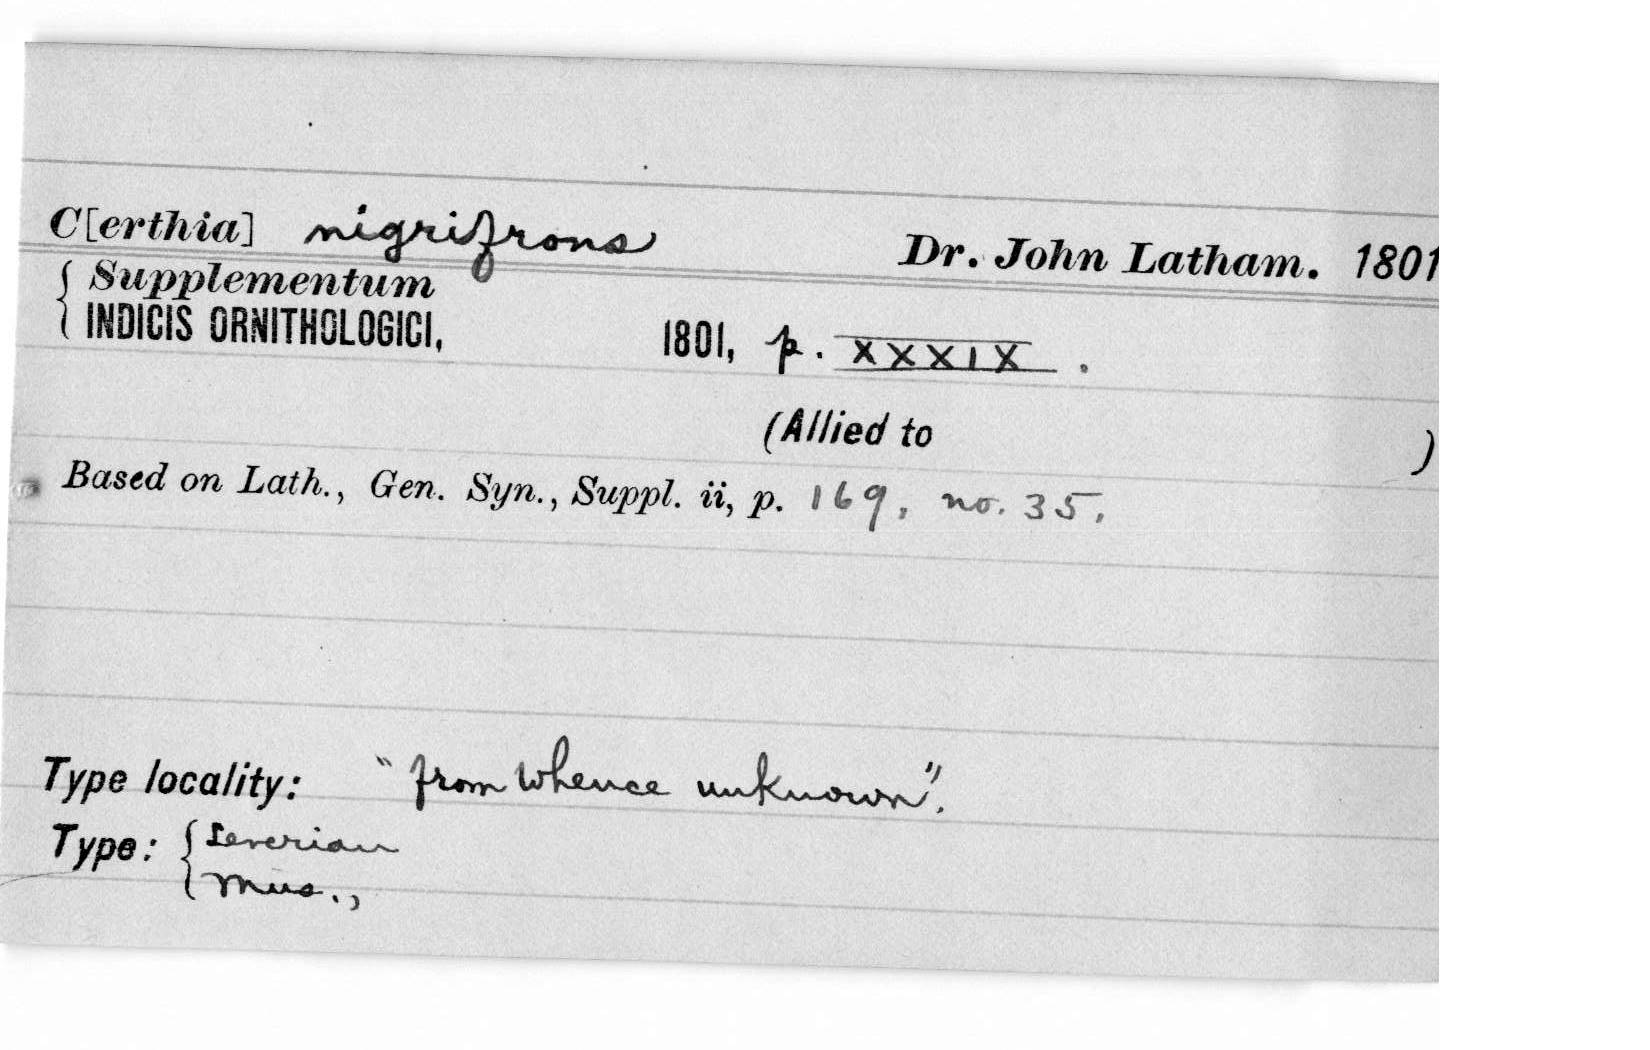 C[erthia] nigrifrons Dr. John Latham. 1801
Supplementum
INDICIS ORNITHOLOGICI, 1801, p. XXXIX.
(Allied to )
Based on Lath., Gen. Syn., Suppl. ii, p. 169, no. 35.
Type locality: "from whence unknown".
Type: Leverian
Mus.,